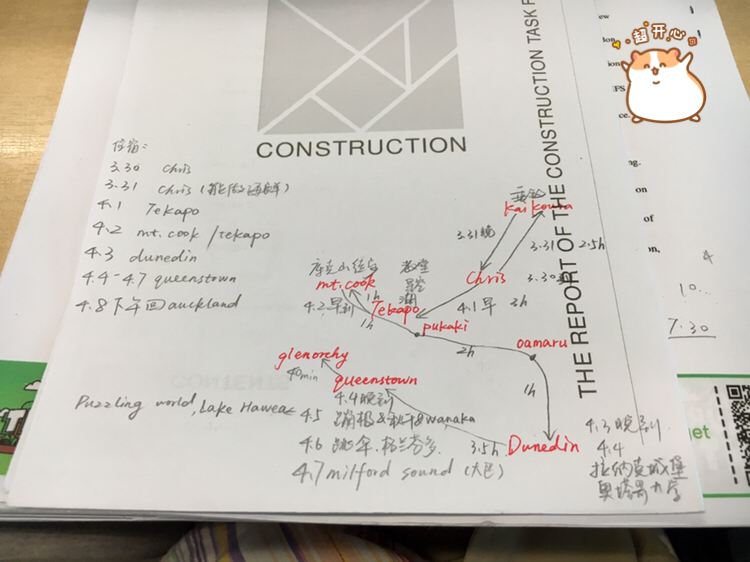 超开心
CONSTRUCTION
THE REPORT OF THE CONSTRUCTION TASK F
住宿:
3.30 Chris
3.31 Chris (能做海鲜)
4.1 Tekapo
4.2 mt.cook / tekapo
4.3 dunedin
4.4-4.7 queenstown
4.8 下午回 auckland
kaikoura
3.31晚
3.31
2.5h
Chris
3.30
库克山徒步
mt.cook
教堂
星空
湖
1h
Tekapo
4.1早
3h
4.2早到
1h
pukaki
2h
oamaru
1h
glenorchy
40min
queenstown
4.4晚到
Puzzling world, Lake Hawea
4.5 蹦极&秋千&wanaka
4.6 跳伞,格兰芬多
3.5h
Dunedin
4.3晚到
4.4
拉纳克城堡
奥塔哥大学
4.7 milford sound (大巴)
ew
ion
FS
ce.
ng.
on
of
on,
4
10..
7.30
get